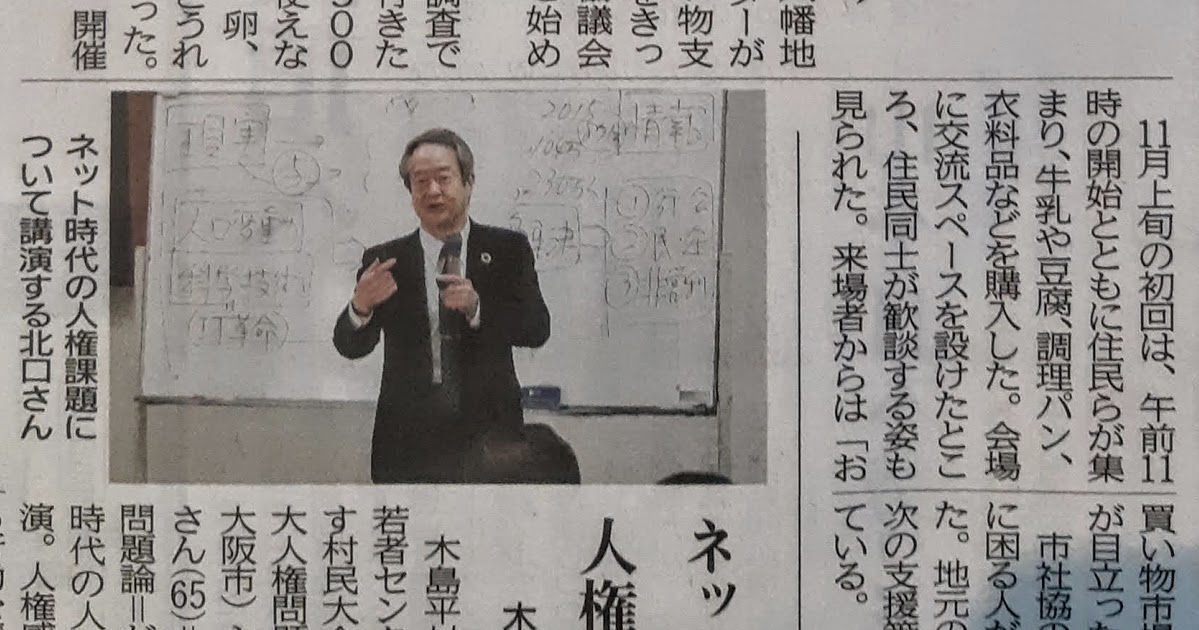 幡地
ーが
物支
をきっ
議会
と始め
調査で
行きた
００
使えな
卵、
うれ
った。
開催
11月上旬の初回は、午前11
時の開始とともに住民らが集
まり、牛乳や豆腐、調理パン、
衣料品などを購入した。会場
に交流スペースを設けたとこ
ろ、住民同士が歓談する姿も
見られた。来場者からは「お
買い物市場
が目立った
市社協の
に困る人が
た。地元の
次の支援策
ている。
2015
情報
⑤
①行
②民
③非営利
科学技術
(IT革命)
ネット時代の人権課題に
ついて講演する北口さん
ネッ
人権
木
木島平村
若者センタ
す村民大会
大人権問題
大阪市）
さん(65)＝
問題論＝が
時代の人
演。人権感